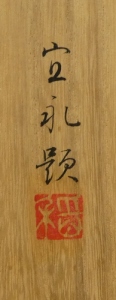 宜永題